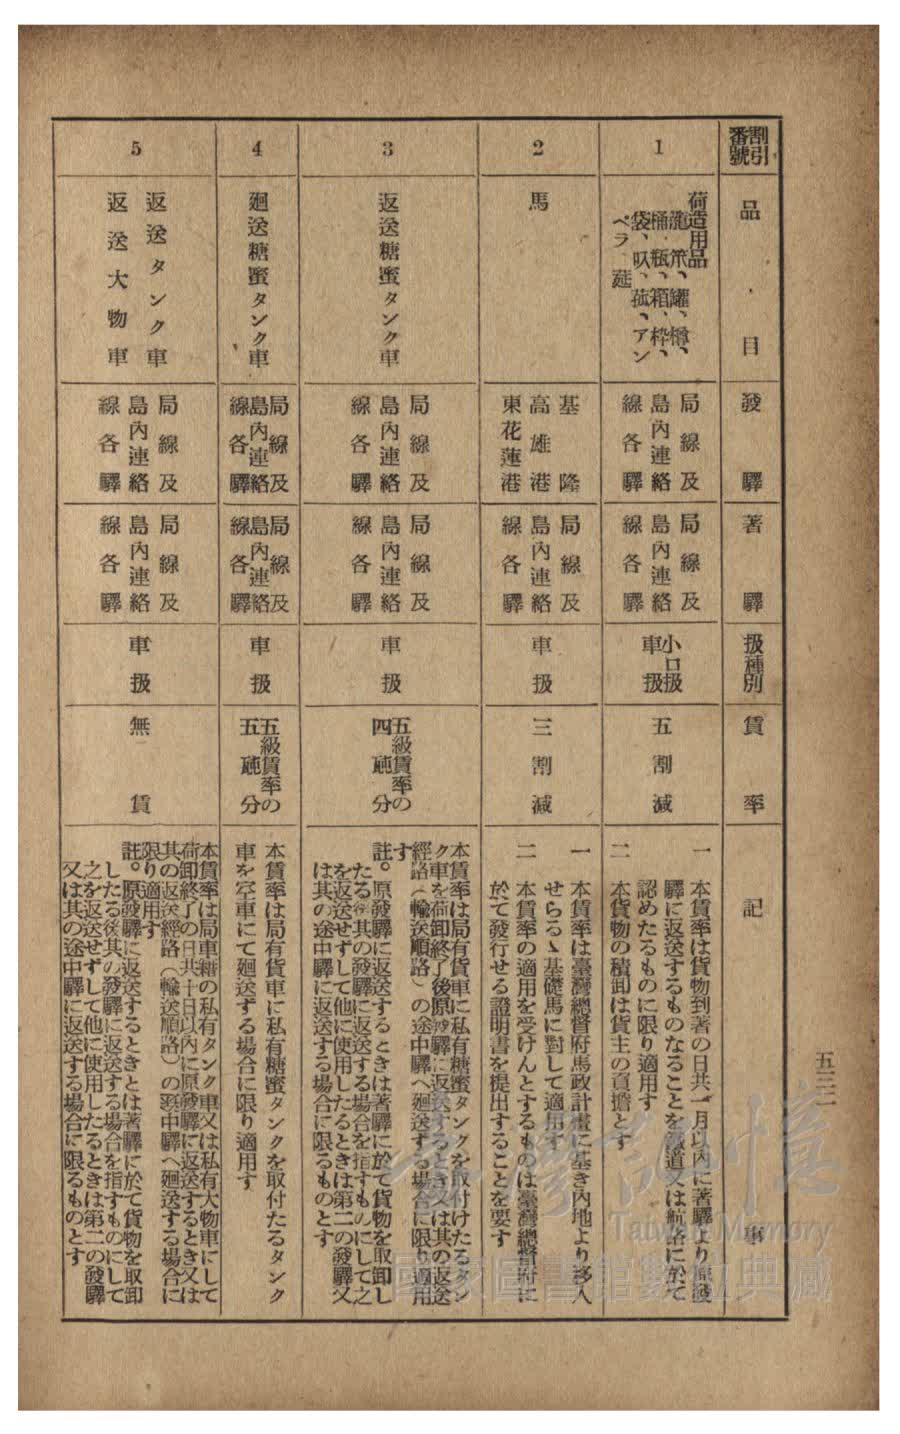 五三二
割引
番號
品目
發驛
著驛
扱種別
賃率
記事
1
荷造用品
籠、笊、罐、樽、
桶、瓶、箱、枠、
袋、叺、菰、アン
ペラ、莚
局線及
島內連絡
線各驛
局線及
島內連絡
線各驛
小口扱
車扱
五割減
一 本賃率は貨物到著の日共一ヶ月以內に著驛より原發
驛に返送するものなることを鐵道又は航路に於て
認めたるものに限り適用す
二 本貨物の積卸は貨主の負擔とす
2
馬
基隆
高雄港
東花蓮港
局線及
島內連絡
線各驛
車扱
三割減
一 本賃率は臺灣總督府馬政計畫に基き內地より移入
せらるゝ基礎馬に對して適用す
二 本賃率の適用を受けんとするものは臺灣總督府に
於て發行せる證明書を提出することを要す
3
返送糖蜜タンク車
局線及
島內連絡
線各驛
局線及
島內連絡
線各驛
車扱
五級賃率の
四瓲分
本賃率は局有貨車に私有糖蜜タンクを取付けたるタン
ク車を荷卸終了後原發驛に返送するとき又は其の返送
經路(輸送順路)の途中驛へ廻送する場合に限り適用
す
註。原發驛に返送するときは著驛に於て貨物を取卸し
たる後其の發驛に返送する場合を指すものにして之
を返送せずして他に使用したるときは第二の發驛又
は其の途中驛に返送する場合に限るものとす
4
廻送糖蜜タンク車
局線及
島內連絡
線各驛
局線及
島內連絡
線各驛
車扱
五級賃率の
五瓲分
本賃率は局有貨車に私有糖蜜タンクを取付たるタンク
車を空車にて廻送する場合に限り適用す
5
返送タンク車
返送大物車
局線及
島內連絡
線各驛
局線及
島內連絡
線各驛
車扱
無賃
本賃率は局車籍の私有タンク車又は私有大物車にして
荷卸終了の日共十日以內に原發驛に返送するとき又は
其の返送經路(輸送順路)の途中驛へ廻送する場合に
限り適用す
註。原發驛に返送するときとは著驛に於て貨物を取卸
したる後其の發驛に返送する場合を指すものにして
之を返送せずして他に使用したるときは第二の發驛
又は其の途中驛に返送する場合に限るものとす
臺灣記憶
Taiwan Memory
國家圖書館數位典藏